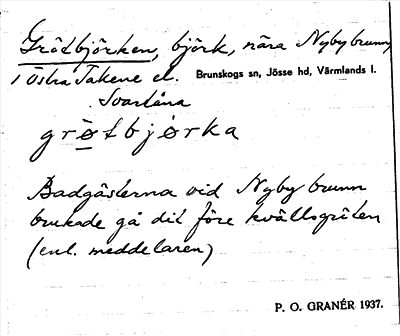 Grötbjörken, björk, nära Nybybrunn
i östra Takene el. Brunskogs sn, Jösse hd, Värmlands l.
Svartåna
grøtbjørka
Badgästerna vid Nyby brunn
brukade gå dit före kvällsgröten
(enl. meddelaren)
P. O. GRANÉR 1937.